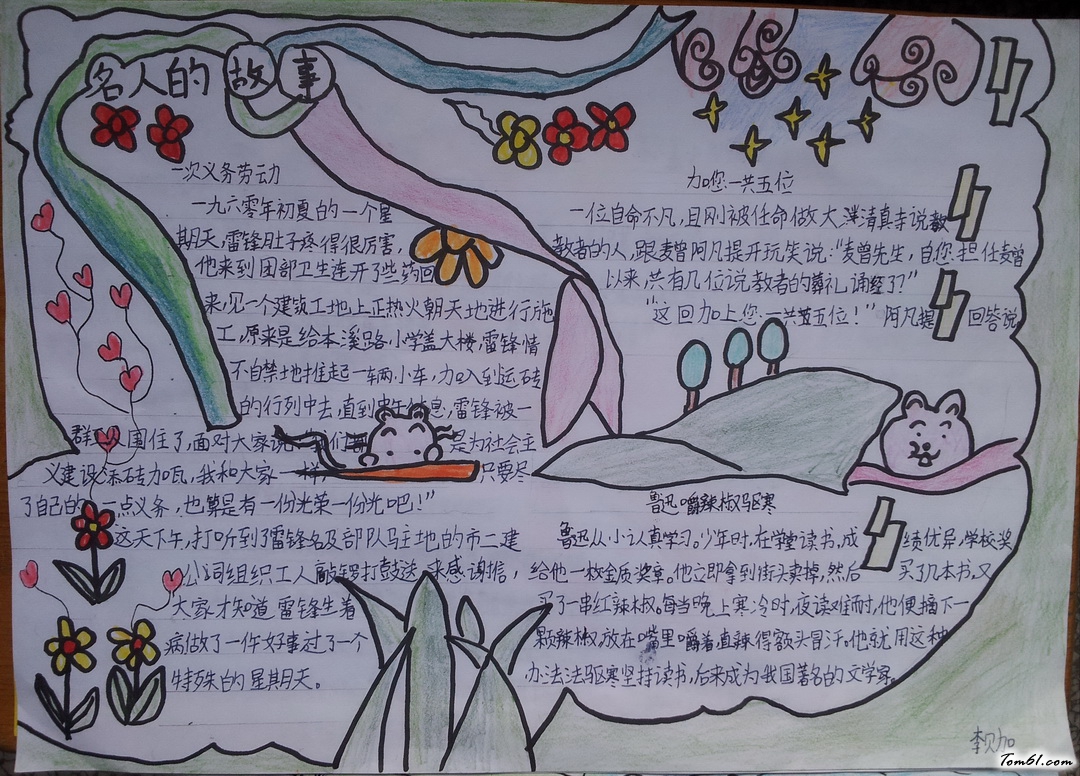 名人的故事
一次义务劳动
一九六零年初夏的一个星
期天,雷锋肚子疼得很厉害,
他来到团部卫生连开了些药回
来,见一个建筑工地上正热火朝天地进行施
工,原来是给本溪路小学盖大楼,雷锋情
不自禁地推起一辆小车,加入到运砖
的行列中去,直到中午休息,雷锋被一
群工人围住了,面对大家说 我们 是为社会主
义建设添砖加瓦,我和大家一样, 只要尽
了自己的一点义务,也算是有一份光荣一份光吧!"
这天下午,打听到了雷锋名及部队驻地的市二建
公司组织工人敲锣打鼓送 来感谢信,
大家才知道雷锋生着
病做了一件好事过了一个
特殊的星期天。
加您一共五位
一位自命不凡,且刚被任命做大 清真寺说教
教者的人,跟麦曾阿凡提开玩笑说:"麦曾先生,自您担任麦曾
以来,共有几位说教者的葬礼诵经了?"
"这回加上您一共五位!"阿凡提 回答说
鲁迅嚼辣椒驱寒
鲁迅从小认真学习。少年时,在学堂读书,成 绩优异,学校奖
给他一枚金质奖章。他立即拿到街头卖掉,然后 买了几本书,又
买了一串红辣椒,每当晚上寒冷时,夜读难耐,他便摘下一
颗辣椒,放在嘴里嚼着,直辣得额头冒汗。他就用这种
办法法驱寒坚持读书,后来成为我国著名的文学家。
李贝加
Tom61.com